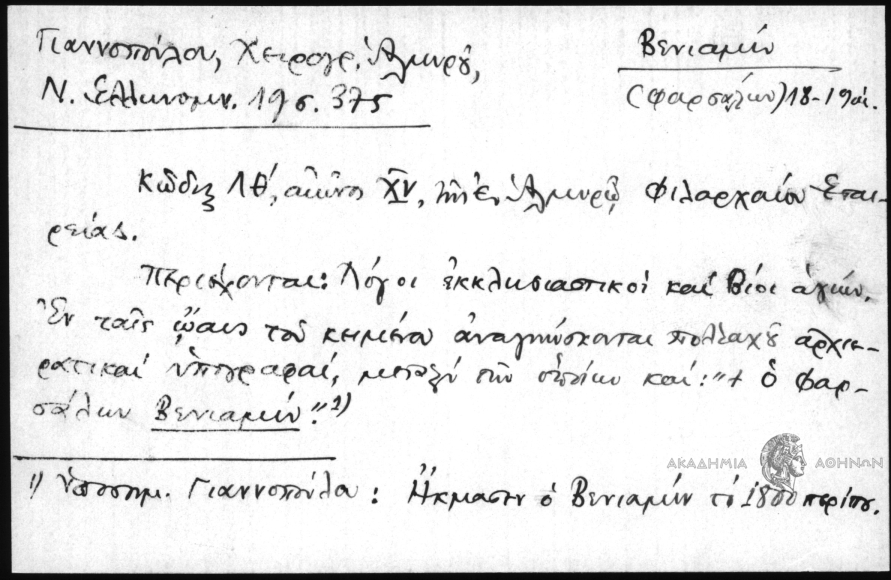 Γιαννοπούλου, Χειρογρ. Ἁλμυροῦ,
Ν. Ἑλληνομν. 19 σ. 375
Βενιαμίν
(Φαρσάλων) 18-19 αἰ.
Κῶδιξ ΛΘ΄, αἰῶνος XV, τῆς ἐν Ἁλμυρῷ Φιλαρχαίου Ἑται-
ρείας.
Περιέχονται: Λόγοι ἐκκλησιαστικοί καί Βίοι ἁγίων.
Ἐν ταῖς ᾤαις τοῦ κειμένου ἀναγινώσκονται πολλαχοῦ ἀρχιε-
ρατικαί ὑπογραφαί, μεταξύ τῶν ὁποίων καί: "+ ὁ Φαρ-
σάλων Βενιαμίν". 1)
1) Ὑποσημ. Γιαννοπούλου: Ἤκμασεν ὁ Βενιαμίν τό 1800 περίπου.
ΑΚΑΔΗΜΙΑ ΑΘΗΝΩΝ